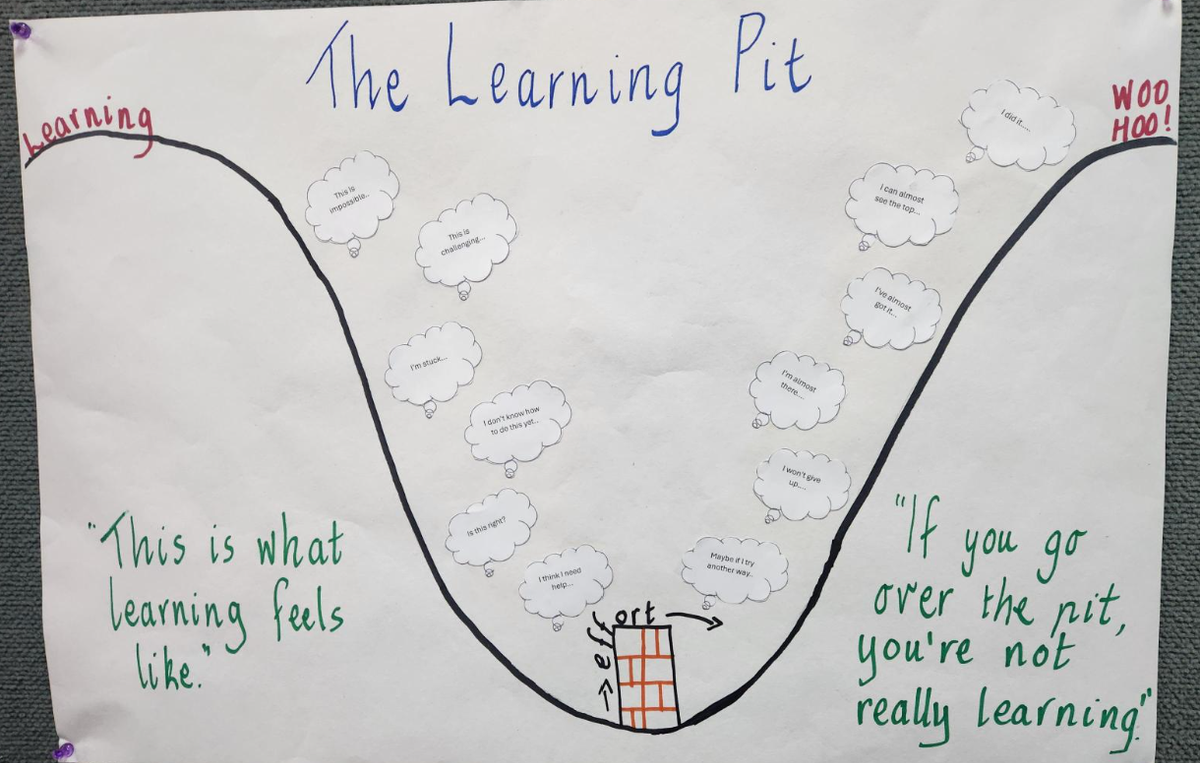 The Learning Pit
Learning
WOO
HOO!
This is
impossible..
This is
challenging...
I'm stuck....
I don't know how
to do this yet...
Is this right?
I think I need
help....
effort
Maybe if I try
another way..
I won't give
up....
I'm almost
there....
I've almost
got it...
I can almost
see the top...
I did it....
"This is what
learning feels
like."
"If you go
over the pit,
you're not
really learning."